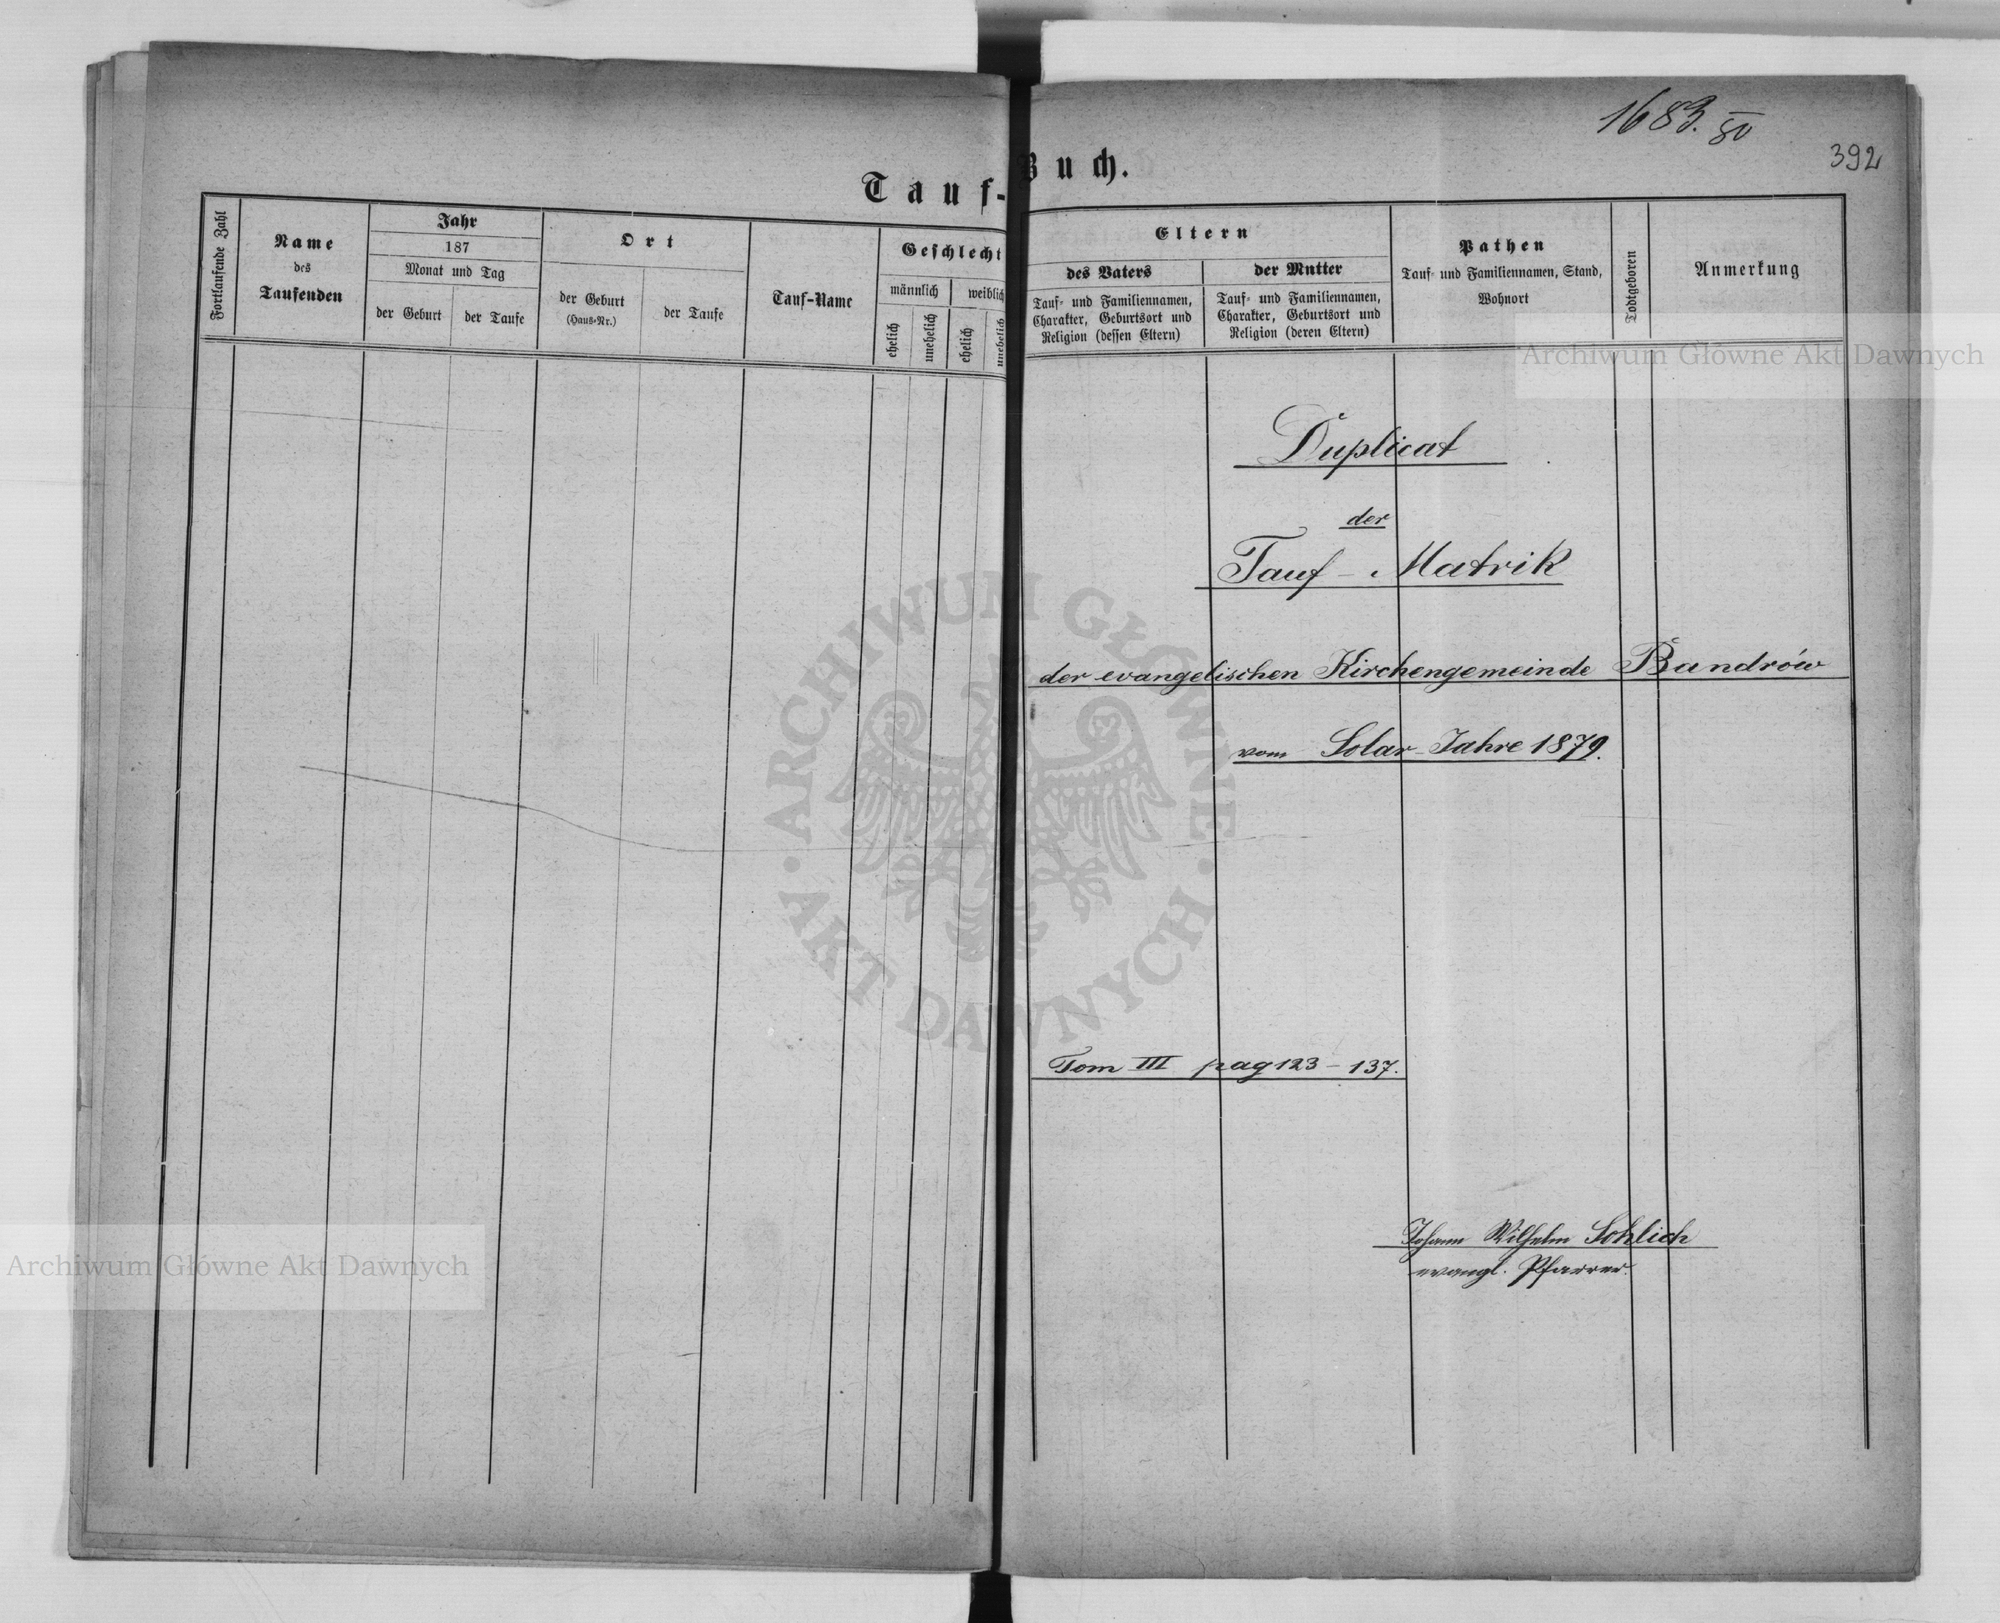 1683. IV/80
392
Tauf-Buch.
Fortlaufende Zahl
Name
des
Taufenden
Jahr
187
Monat und Tag
der Geburt
der Taufe
Ort
der Geburt
(Haus-Nr.)
der Taufe
Tauf-Name
Geschlecht
männlich
weiblich
ehelich
unehelich
ehelich
unehelich
Eltern
des Vaters
Tauf- und Familiennamen,
Charakter, Geburtsort und
Religion (dessen Eltern)
der Mutter
Tauf- und Familiennamen,
Charakter, Geburtsort und
Religion (deren Eltern)
Pathen
Tauf- und Familiennamen, Stand,
Wohnort
Todtgeboren
Anmerkung
Archiwum Główne Akt Dawnych
Duplicat
der
Tauf-Matrik
der evangelischen Kirchengemeinde Bandrów
vom Solar-Jahre 1879.
ARCHIWUM GŁÓWNE
AKT DAWNYCH
Tom III pag 123-137.
Johann Wilhelm Sohlich
evangl. Pfarrer.
Archiwum Główne Akt Dawnych